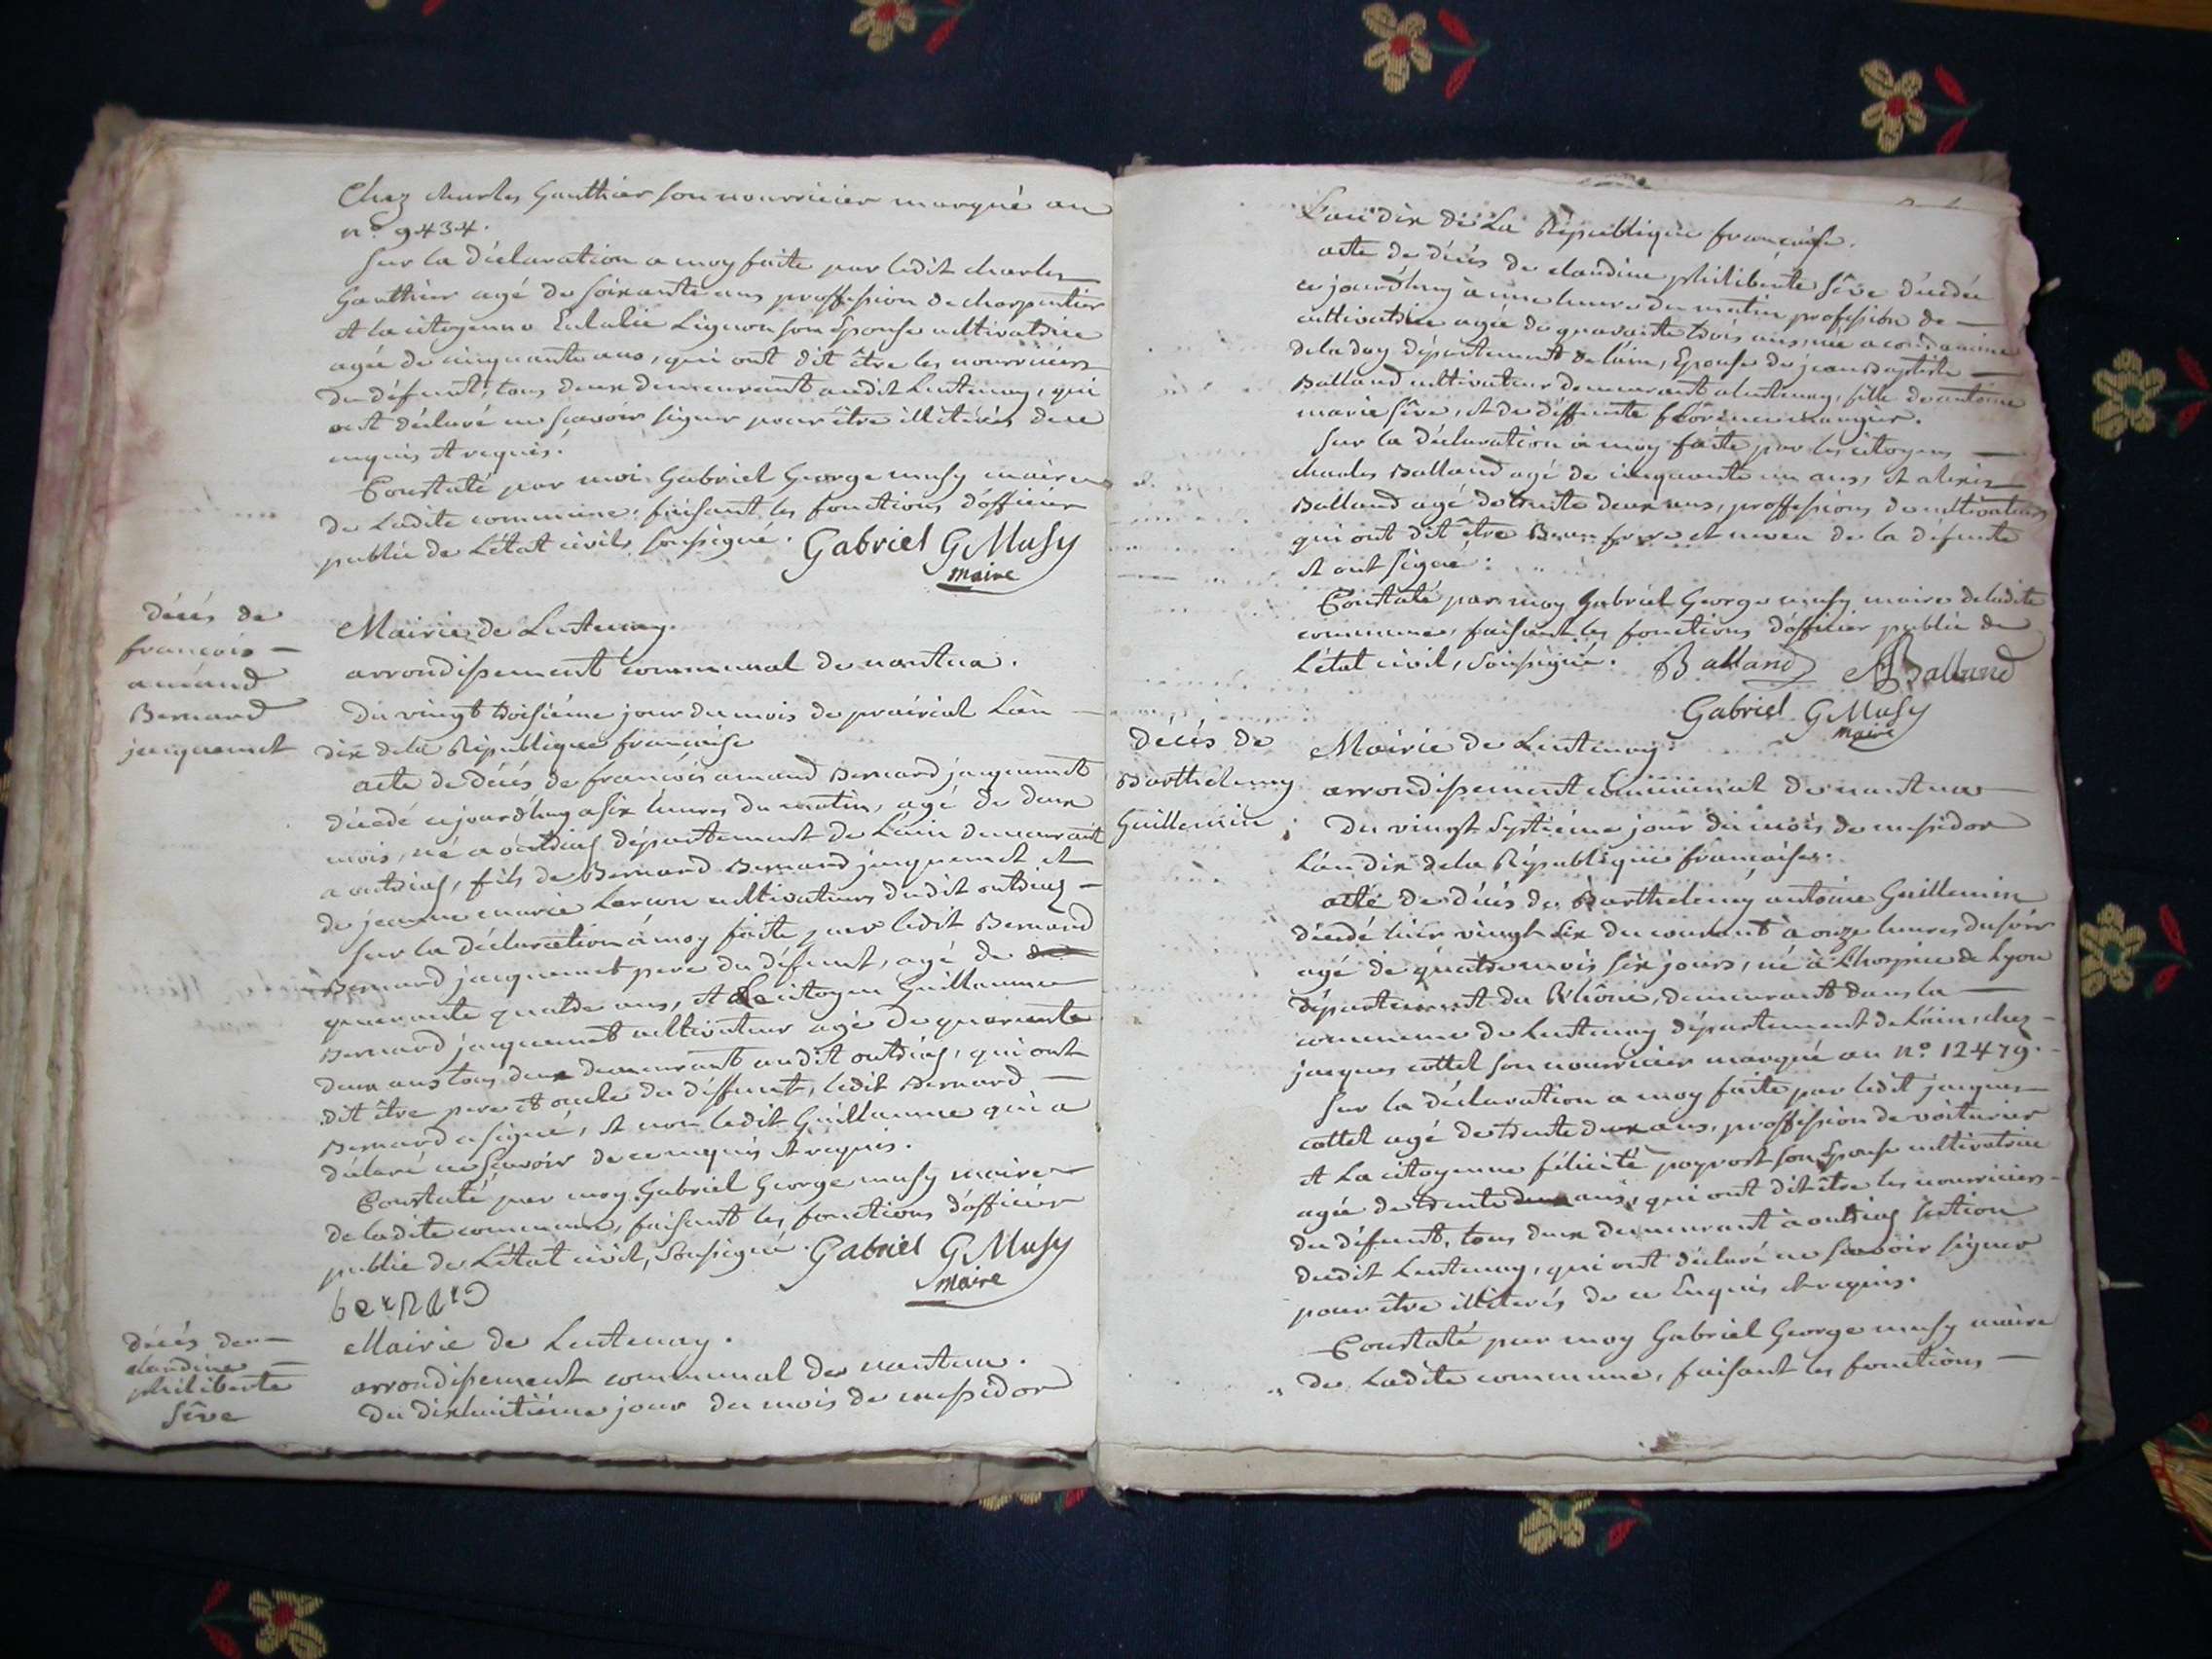 Chez charles Gauthier son nourricier marqué au
n.º 9434.
Sur la déclaration a moy faite par ledit charles
Gauthier agé de soixante ans proffession de charpentier
et la citoyenne Eulalie Lignon son épouse cultivatrice
agée de cinquante ans, qui ont dit être les nourriciers
du défunt, tous deux demeurant audit Lentenay, qui
ont déclaré ne scavoir signer pour être illitérés de ce
enquis et requis.
Constaté par moi Gabriel George musy maire
de Ladite commune, faisant les fonctions d'officier
public de L'état civil, soussigné. Gabriel G Musy
maire
décés de
francois
amand
Bernard
jacquemet
Mairie de Lentenay.
arrondissement communal de nantua.
Du vingt troisiéme jour du mois de prairial L'an
dix de la République francaise
acte de décés de francois amand Bernard jacquemet
décedé cejourd'huy a six heures du matin, agé de deux
mois, né a outriaz département de L'ain demeurant
a outriaz, fils de Bernard Bernard jacquemet et
de jeanne marie Larcon cultivateurs dudit outriaz
Sur la déclaration à moy faite par ledit Bernard
Bernard jacquemet pere du défunt, agé de
quarante quatre ans, et Le citoyen Guillaume
Bernard jacquemet cultivateur agé de quarante
deux ans tous deux demeurant audit outriaz, qui ont
dit être pere et oncle du déffunt, ledit Bernard
Bernard a signé, et non ledit Guillaume qui a
déclaré ne scavoir de ce enquis et requis.
Constaté par moy Gabriel George musy maire
de ladite commune, faisant les fonctions d'officier
public de L'état civil, soussigné. Gabriel G Musy
maire
décés de
claudine
philiberte
Sêve
Mairie de Lentenay.
arrondissement communal de nantua.
Du dixhuitiéme jour du mois de messidor
L'an dix de La République francaise.
acte de décés de claudine philiberte Sêve décedée
cejourd'huy à une heure du matin profession de
cultivatrice agée de quarante trois ans, née a condamine
de la doy département de l'ain, Epouse de jean Baptiste
Balland cultivateur demeurant a lentenay, fille de antoine
marie Sêve, et de déffunte florence mangier.
Sur la déclaration à moy faite par les citoyens
charles Balland agé de cinquante un ans, et alexis
Balland agé de trente deux ans, proffessions de cultivateurs
qui ont dit être Beau frere et neveu de la défunte
et ont signé.
Constaté par moy Gabriel George musy maire de ladite
commune, faisant les fonctions d'officier public de
L'état civil, soussigné. Balland A Balland
Gabriel G Musy
maire
décés de
Barthelemy
Guillemin
Mairie de Lentenay.
arrondissement communal de nantua
Du vingt Septiéme jour du mois de messidor
L'an dix de la République francaise.
acte de décés de Barthelemy antoine Guillemin
décedé hier vingt six du courant à onze heures du soir
agé de quatre mois six jours, né à L'hospice de Lyon
département du Rhône, demeurant dans la
commune de Lentenay département de L'ain, chez
jacques cottet son nourricier marqué au nº 12479.
Sur la déclaration a moy faite par ledit jacques
cottet agé de trente deux ans, proffession de voiturier
et La citoyenne félicité poyvost son épouse cultivatrice
agée de trente deux ans, qui ont dit être les nourriciers
du défunt, tous deux demeurant à outriaz section
dudit Lentenay, qui ont déclaré ne scavoir signer
pour être illiterés de ce Enquis et requis.
Constaté par moy Gabriel George musy maire
de Ladite commune, faisant les fonctions